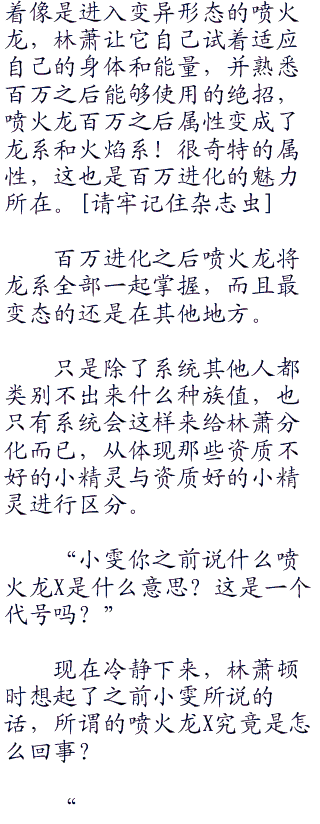 着像是进入变异形态的喷火
龙，林萧让它自己试着适应
自己的身体和能量，并熟悉
百万之后能够使用的绝招，
喷火龙百万之后属性变成了
龙系和火焰系！很奇特的属
性，这也是百万进化的魅力
所在。[请牢记住杂志虫]
百万进化之后喷火龙将
龙系全部一起掌握，而且最
变态的还是在其他地方。
只是除了系统其他人都
类别不出来什么种族值，也
只有系统会这样来给林萧分
化而已，从体现那些资质不
好的小精灵与资质好的小精
灵进行区分。
“小雯你之前说什么喷
火龙X是什么意思？这是一个
代号吗？”
现在冷静下来，林萧顿
时想起了之前小雯所说的
话，所谓的喷火龙X究竟是怎
么回事？
“